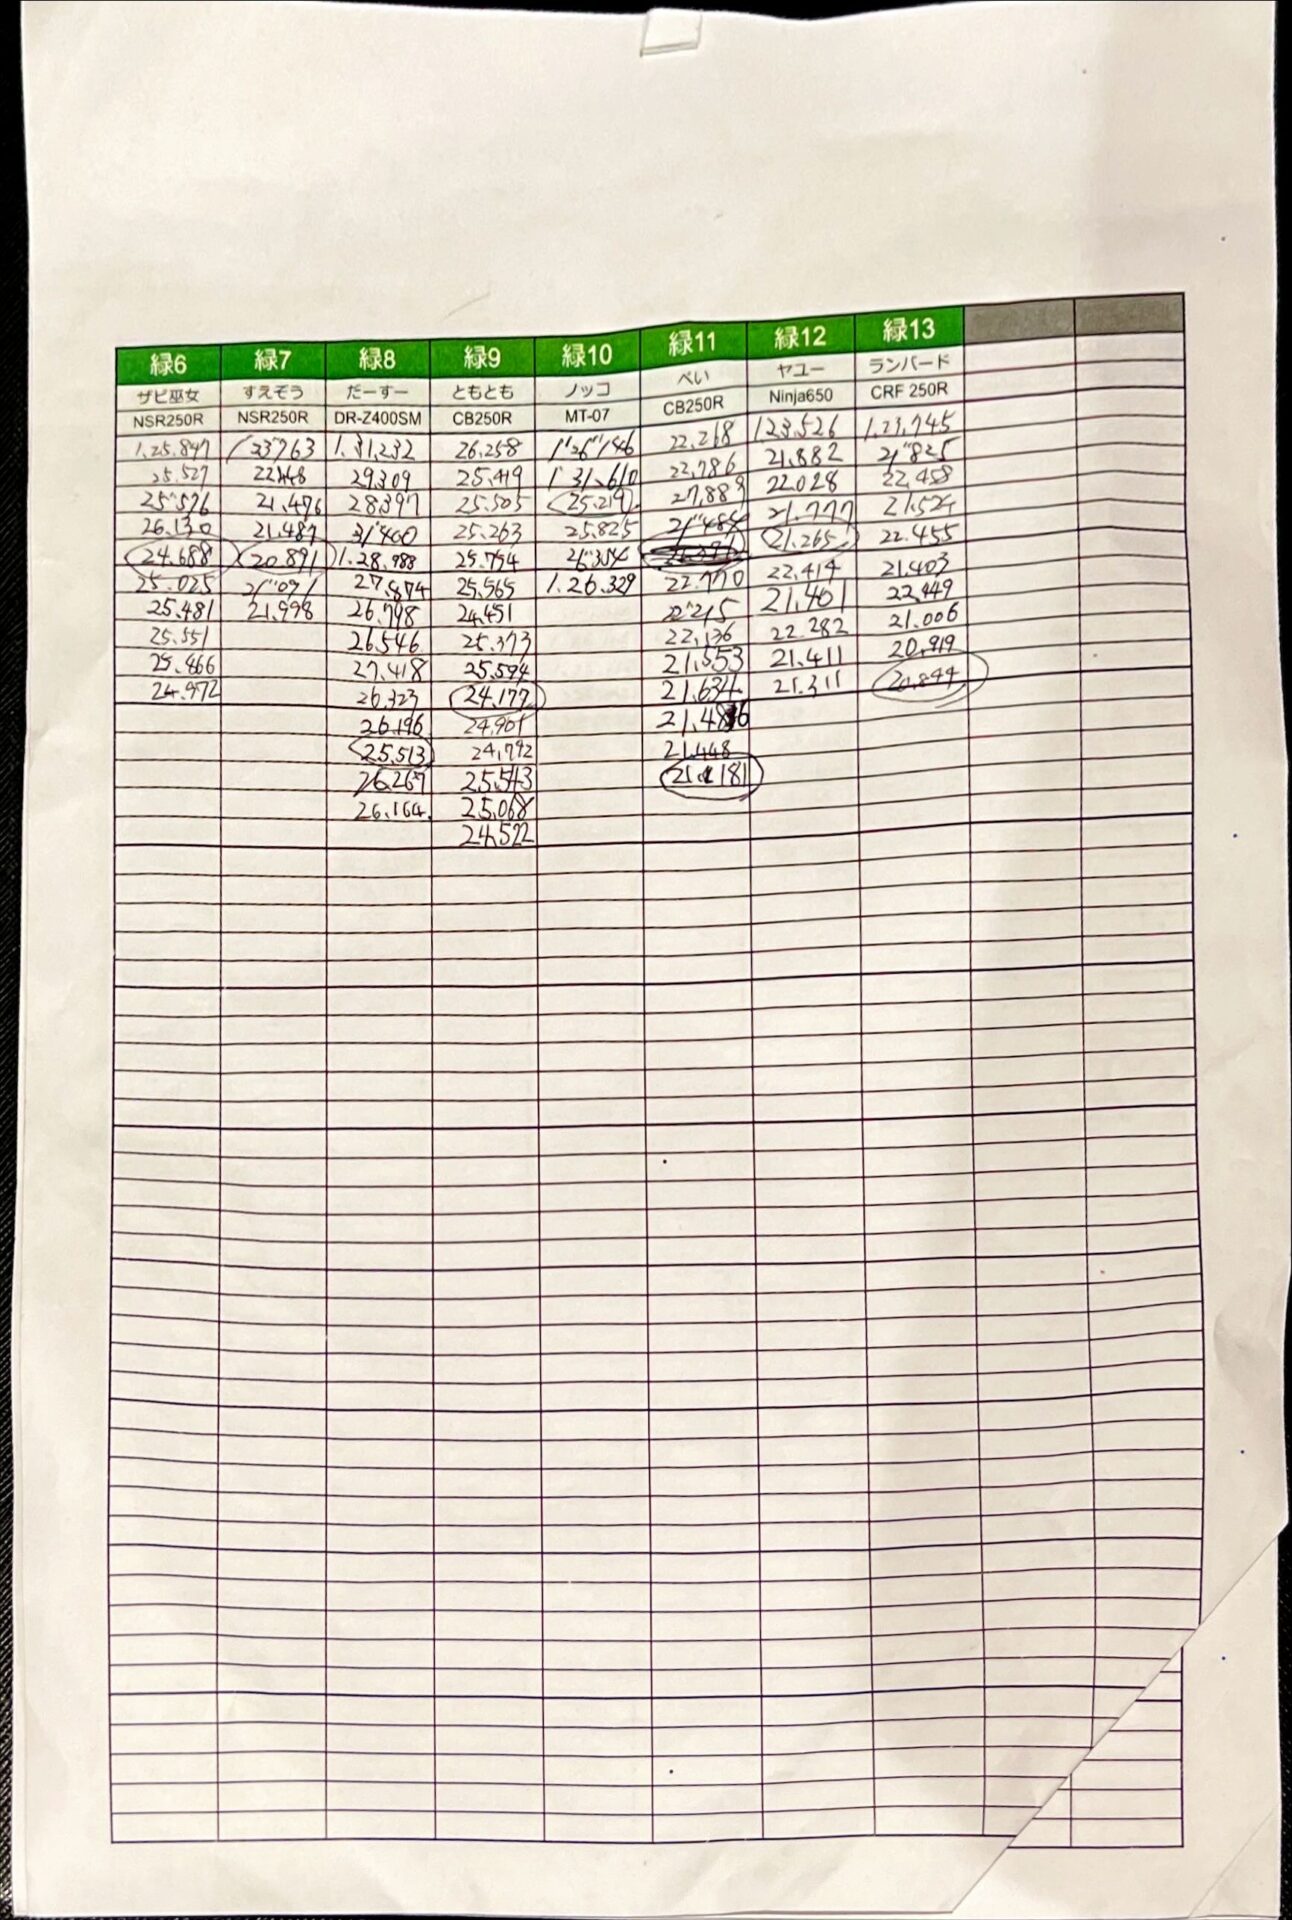 緑6 緑7 緑8 緑9 緑10 緑11 緑12 緑13
ザビ巫女 すえぞう だーすー ともとも ノッコ ぺい ヤユー ランバード
NSR250R NSR250R DR-Z400SM CB250R MT-07 CB250R Ninja650 CRF 250R
1.25.847 1.31.232 26.258 1'26"146 22.268 1 23.526
25.527 29.309 25.419 1 31.610 22.786 21.882 21"825
25"576 21.476 28.397 25.505 25.219 27.889 22.028 22.458
26.130 21.487 31"400 25.263 25.825 21"484 21.777 21.524
24.688 20.891 1.28.988 25.754 21.265 22.455
25.025 21"091 27.874 25.565 1.26.329 22.770 22.414 21.403
25.481 21.998 26.798 24.451 22"215 21.401 22.449
25.551 26.546 25.373 22.136 22.282 21.006
25.466 27.418 25.594 21.553 21.411 20.919
24.972 26.323 24.177 21.634 21.311 20.844
26.196 24.901
25.513 24.792 21.448
26.267 25.543 181
26.164 25.068
24.522